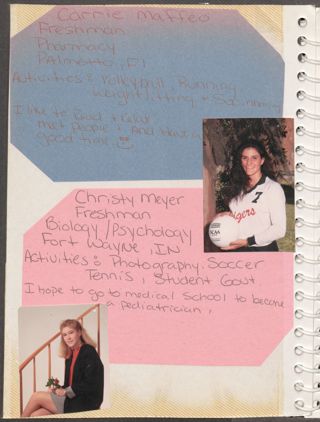 Carrie Maffeo
Freshman
Pharmacy
Palmetto, Fl
Activities: Volleyball, Running
Weight lifting + Swimming
I like to
relax
met people. And have a
good time.
Tigers
7
Christy Meyer
Freshman
Biology/Psychology
Fort Wayne, IN
Activities: Photography, Soccer
Tennis, Student Govt
I hope to go to medical school to become
a pediatrician.